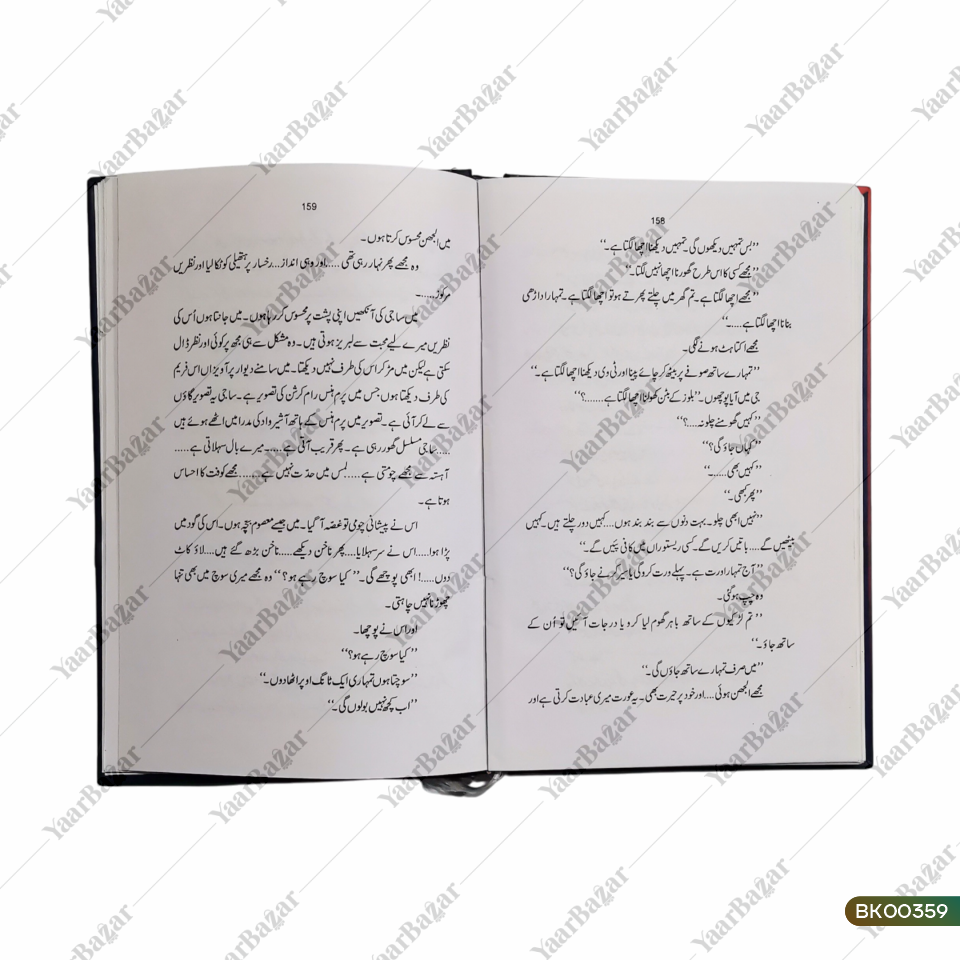 158
’’بس تمہیں دیکھوں گی۔ تمہیں دیکھنا اچھا لگتا ہے۔‘‘
’’مجھے کسی کا اس طرح گھورنا اچھا نہیں لگتا۔‘‘
’’مجھے اچھا لگتا ہے۔ تم گھر میں چلتے پھرتے ہو تو اچھا لگتا ہے۔ تمہارا داڑھی
بنانا اچھا لگتا ہے.....۔‘‘
مجھے اکتاہٹ ہونے لگی۔
’’تمہارے ساتھ صوفے پر بیٹھ کر چائے پینا اور ٹی وی دیکھنا اچھا لگتا ہے۔‘‘
جی میں آیا پوچھوں۔ ’’بلوز کے بٹن کھولنا اچھا لگتا ہے.......؟‘‘
’’کہیں گھومنے چلو نہ.....؟‘‘
’’کہاں جاؤ گی؟‘‘
’’کہیں بھی.....۔‘‘
’’پھر کبھی۔‘‘
’’نہیں ابھی چلو۔ بہت دنوں سے بند بند ہوں.....کہیں دور چلتے ہیں۔ کہیں
بیٹھیں گے.....باتیں کریں گے۔ کسی ریستوراں میں کافی پئیں گے۔‘‘
’’آج تمہارا ورت ہے۔ پہلے ورت کرو گی یا سیر کرنے جاؤ گی؟‘‘
وہ چپ ہو گئی۔
’’تم لڑکیوں کے ساتھ باہر گھوم لیا کرو یا درجات آئیں تو اُن کے
ساتھ جاؤ۔‘‘
’’میں صرف تمہارے ساتھ جاؤں گی۔‘‘
مجھے الجھن ہوئی.....اور خود پر حیرت بھی۔ یہ عورت میری عبادت کرتی ہے اور
159
میں الجھن محسوس کرتا ہوں۔
وہ مجھے پھر نہار رہی تھی.....اور وہی انداز.....رخسار پر ہتھیلی کو ٹکا لیا اور نظریں
مرکوز.....۔
میں ساجی کی آنکھیں اپنی پشت پر محسوس کر رہا ہوں۔ میں جانتا ہوں اُس کی
نظریں میرے لیے محبت سے لبریز ہوتی ہیں۔ وہ مشکل سے ہی مجھ پر کوئی اور نظر ڈال
سکتی ہے لیکن میں مڑ کر اس کی طرف نہیں دیکھتا۔ میں سامنے دیوار پر آویزاں اس فریم
کی طرف دیکھتا ہوں جس میں پرم ہنس رام کرشن کی تصویر ہے۔ ساجی یہ تصویر گاؤں
سے لے کر آئی ہے۔ تصویر میں پرم ہنس کے ہاتھ آشیرواد کی مدرا میں اٹھے ہوئے ہیں
.....ساجی مسلسل گھور رہی ہے۔ پھر قریب آتی ہے.....میرے بال سہلاتی ہے.....
آہستہ سے مجھے چومتی ہے.....لمس میں حدت نہیں ہے.......مجھے کوفت کا احساس
ہوتا ہے۔
اس نے پیشانی چومی تو غصہ آ گیا۔ میں جیسے معصوم بچہ ہوں۔ اس کی گود میں
پڑا ہوا.....اس نے سر سہلایا.....پھر ناخن دیکھے.....ناخن بڑھ گئے ہیں.....لاؤ کاٹ
دوں.....! ابھی پوچھے گی۔ ’’کیا سوچ رہے ہو؟‘‘ وہ مجھے میری سوچ میں بھی تنہا
چھوڑنا نہیں چاہتی۔
اور اس نے پوچھا۔
’’کیا سوچ رہے ہو؟‘‘
’’سوچتا ہوں تمہاری ایک ٹانگ اوپر اٹھا دوں۔‘‘
’’اب کچھ نہیں بولوں گی۔‘‘
YaarBazar
BK00359